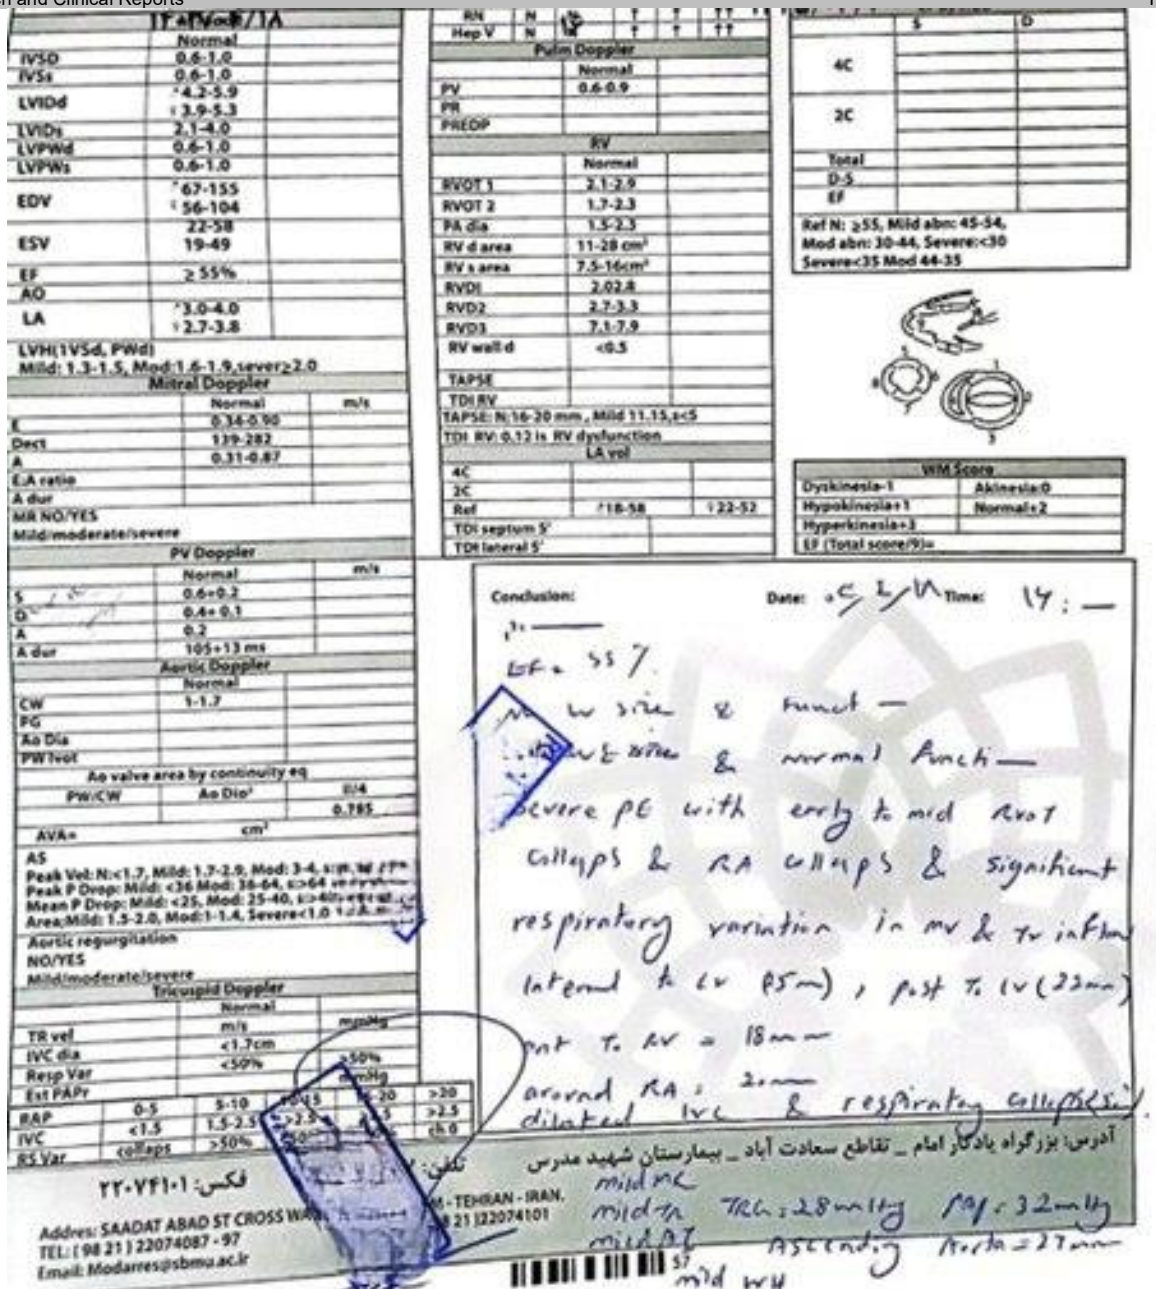 h and Clinical Reports
Normal
IVSD 0.6-1.0
IVSs 0.6-1.0
LVIDd
4.2-5.9
3.9-5.3
LVIDs 2.1-4.0
LVPWd 0.6-1.0
LVPWs 0.6-1.0
EDV
67-155
56-104
ESV
22-58
19-49
EF ≥ 55%
AO
LA
3.0-4.0
2.7-3.8
LVH(1VSd, PWd)
Mild: 1.3-1.5, Mod:1.6-1.9,sever≥2.0
Mitral Doppler
Normal m/s
E 0.34-0.90
Dect 139-282
A 0.31-0.87
E:A ratio
A dur
MR NO/YES
Mild/moderate/severe
PV Doppler
Normal m/s
S 0.6+0.2
D 0.4+ 0.1
A 0.2
A dur 105+13 ms
Aortic Doppler
Normal
CW 1-1.7
PG
Ao Dia
PW lvot
Ao valve area by continuity eq
PW/CW Ao Dio² II/4
0.785
AVA= cm²
AS
Peak Vel: N:<1.7, Mild: 1.7-2.9, Mod: 3-4,
Peak P Drop: Mild: <36 Mod: 36-64, s:>64
Mean P Drop: Mild: <25, Mod: 25-40,
Area;Mild: 1.5-2.0, Mod:1-1.4, Severe<1.0
Aortic regurgitation
NO/YES
Mild/moderate/severe
Tricuspid Doppler
Normal
TR vel m/s mmHg
IVC dia <1.7cm
Resp Var <50% >50%
Est PAPr mmHg
RAP 0-5 5-10 >20
IVC <1.5 1.5-2.5 >2.5 >2.5
RS Var collaps >50% ch.0
RN N ↑ ↑ ↑↑
Hep V N ↑ ↑ ↑↑
Pulm Doppler
Normal
PV 0.6-0.9
PR
PREDP
RV
Normal
RVOT 1 2.1-2.9
RVOT 2 1.7-2.3
PA dia 1.5-2.3
RV d area 11-28 cm²
RV s area 7.5-16cm²
RVDI 2.02.8
RVD2 2.7-3.3
RVD3 7.1-7.9
RV wall d <0.5
TAPSE
TDI RV
TAPSE: N:16-20 mm , Mild 11.15,s<5
TDI RV: 0.12 is RV dysfunction
LA vol
4C
2C
Ref 18-58 22-52
TDI septum S'
TDI lateral S'
S D
4C
2C
Total
D-S
EF
Ref N: ≥55, Mild abn: 45-54,
Mod abn: 30-44, Severe:<30
Severe<35 Mod 44-35
WM Score
Dyskinesia-1 Akinesia:0
Hypokinesia+1 Normal+2
Hyperkinesia+3
EF (Total score/9)=
Conclusion: Date: Time:
EF = 55 %
size & funct
size & normal functi
severe PE with early to mid RVOT
collaps & RA collaps & significant
respiratory variation in mv & Tv inflow
to LV , post To LV (22mm)
ant To RV = 18mm
around RA: 20mm
dilated IVC & respiratory
آدرس: بزرگراه یادگار امام _ تقاطع سعادت آباد _ بیمارستان شهید مدرس
تلفن:
فکس: ۲۲۰۷۴۱۰۱
mild MR
mild TR TRG: 28 mmHg PAP: 32 mmHg
mild Ascending Aorta = 27mm
mild
Addres: SAADAT ABAD ST CROSS - TEHRAN - IRAN.
TEL: ( 98 21 ) 22074087 - 97 98 21 )22074101
Email: Modarres@sbmu.ac.ir
57